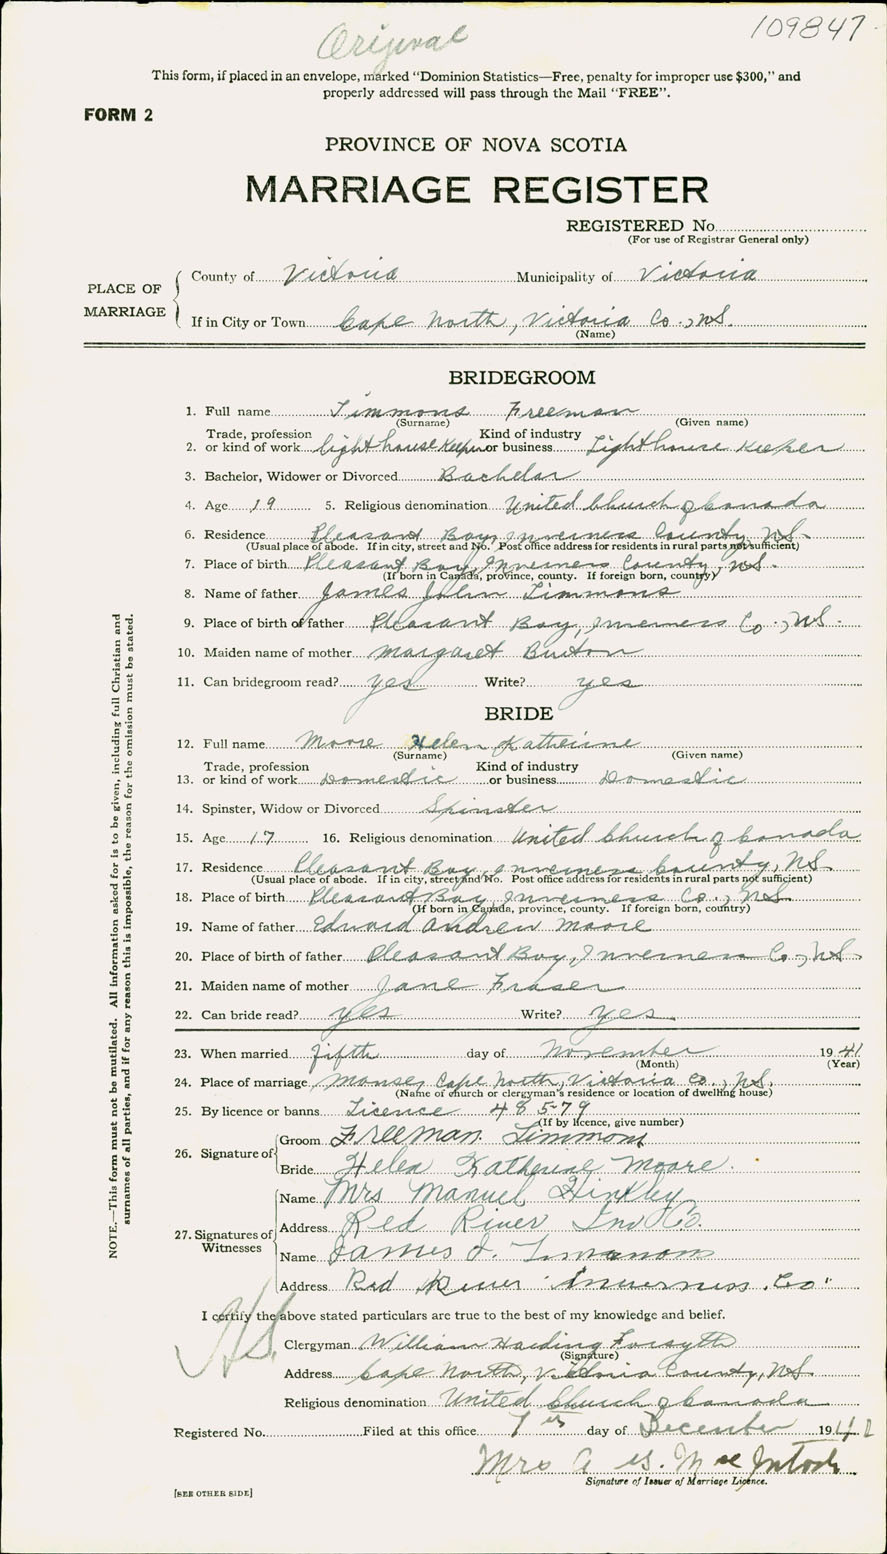 Original
109847
This form, if placed in an envelope, marked “Dominion Statistics—Free, penalty for improper use $300,” and
properly addressed will pass through the Mail “FREE”.
FORM 2
PROVINCE OF NOVA SCOTIA
MARRIAGE REGISTER
REGISTERED No.
(For use of Registrar General only)
PLACE OF MARRIAGE
County of Victoria Municipality of Victoria
If in City or Town Cape North, Victoria Co., N.S.
(Name)
BRIDEGROOM
1. Full name Timmons Freeman
(Surname) (Given name)
2. Trade, profession or kind of work lighthouse Keeper Kind of industry or business Lighthouse Keeper
3. Bachelor, Widower or Divorced Bachelor
4. Age 19 5. Religious denomination United Church of Canada
6. Residence Pleasant Bay, Inverness County, N.S.
(Usual place of abode. If in city, street and No. Post office address for residents in rural parts not sufficient)
7. Place of birth Pleasant Bay, Inverness County, N.S.
(If born in Canada, province, county. If foreign born, country)
8. Name of father James John Timmons
9. Place of birth of father Pleasant Bay, Inverness Co., N.S.
10. Maiden name of mother Margaret Burton
11. Can bridegroom read? yes Write? yes
BRIDE
12. Full name Moore Helen Katherine
(Surname) (Given name)
13. Trade, profession or kind of work Domestic Kind of industry or business Domestic
14. Spinster, Widow or Divorced Spinster
15. Age 17 16. Religious denomination United Church of Canada
17. Residence Pleasant Bay, Inverness County, N.S.
(Usual place of abode. If in city, street and No. Post office address for residents in rural parts not sufficient)
18. Place of birth Pleasant Bay, Inverness Co., N.S.
(If born in Canada, province, county. If foreign born, country)
19. Name of father Edward Andrew Moore
20. Place of birth of father Pleasant Bay, Inverness Co., N.S.
21. Maiden name of mother Jane Fraser
22. Can bride read? yes Write? yes
23. When married fifth day of November 1941
(Month) (Year)
24. Place of marriage Manse, Cape North, Victoria Co., N.S.
(Name of church or clergyman's residence or location of dwelling house)
25. By licence or banns Licence 48579
(If by licence, give number)
26. Signature of
Groom Freeman Timmons
Bride Helen Katherine Moore.
27. Signatures of Witnesses
Name Mrs Manuel Hinkley
Address Red River Inv Co.
Name James J. Timmons
Address Red River Inverness Co
I certify the above stated particulars are true to the best of my knowledge and belief.
Clergyman William Harding Forsyth
(Signature)
Address Cape North, Victoria County, N.S.
Religious denomination United Church of Canada
Registered No. Filed at this office 1st day of December 1941
Mrs A G. MacIntosh
Signature of Issuer of Marriage Licence.
[SEE OTHER SIDE]
NOTE.—This form must not be mutilated. All information asked for is to be given, including full Christian and
surnames of all parties, and if for any reason this is impossible, the reason for the omission must be stated.